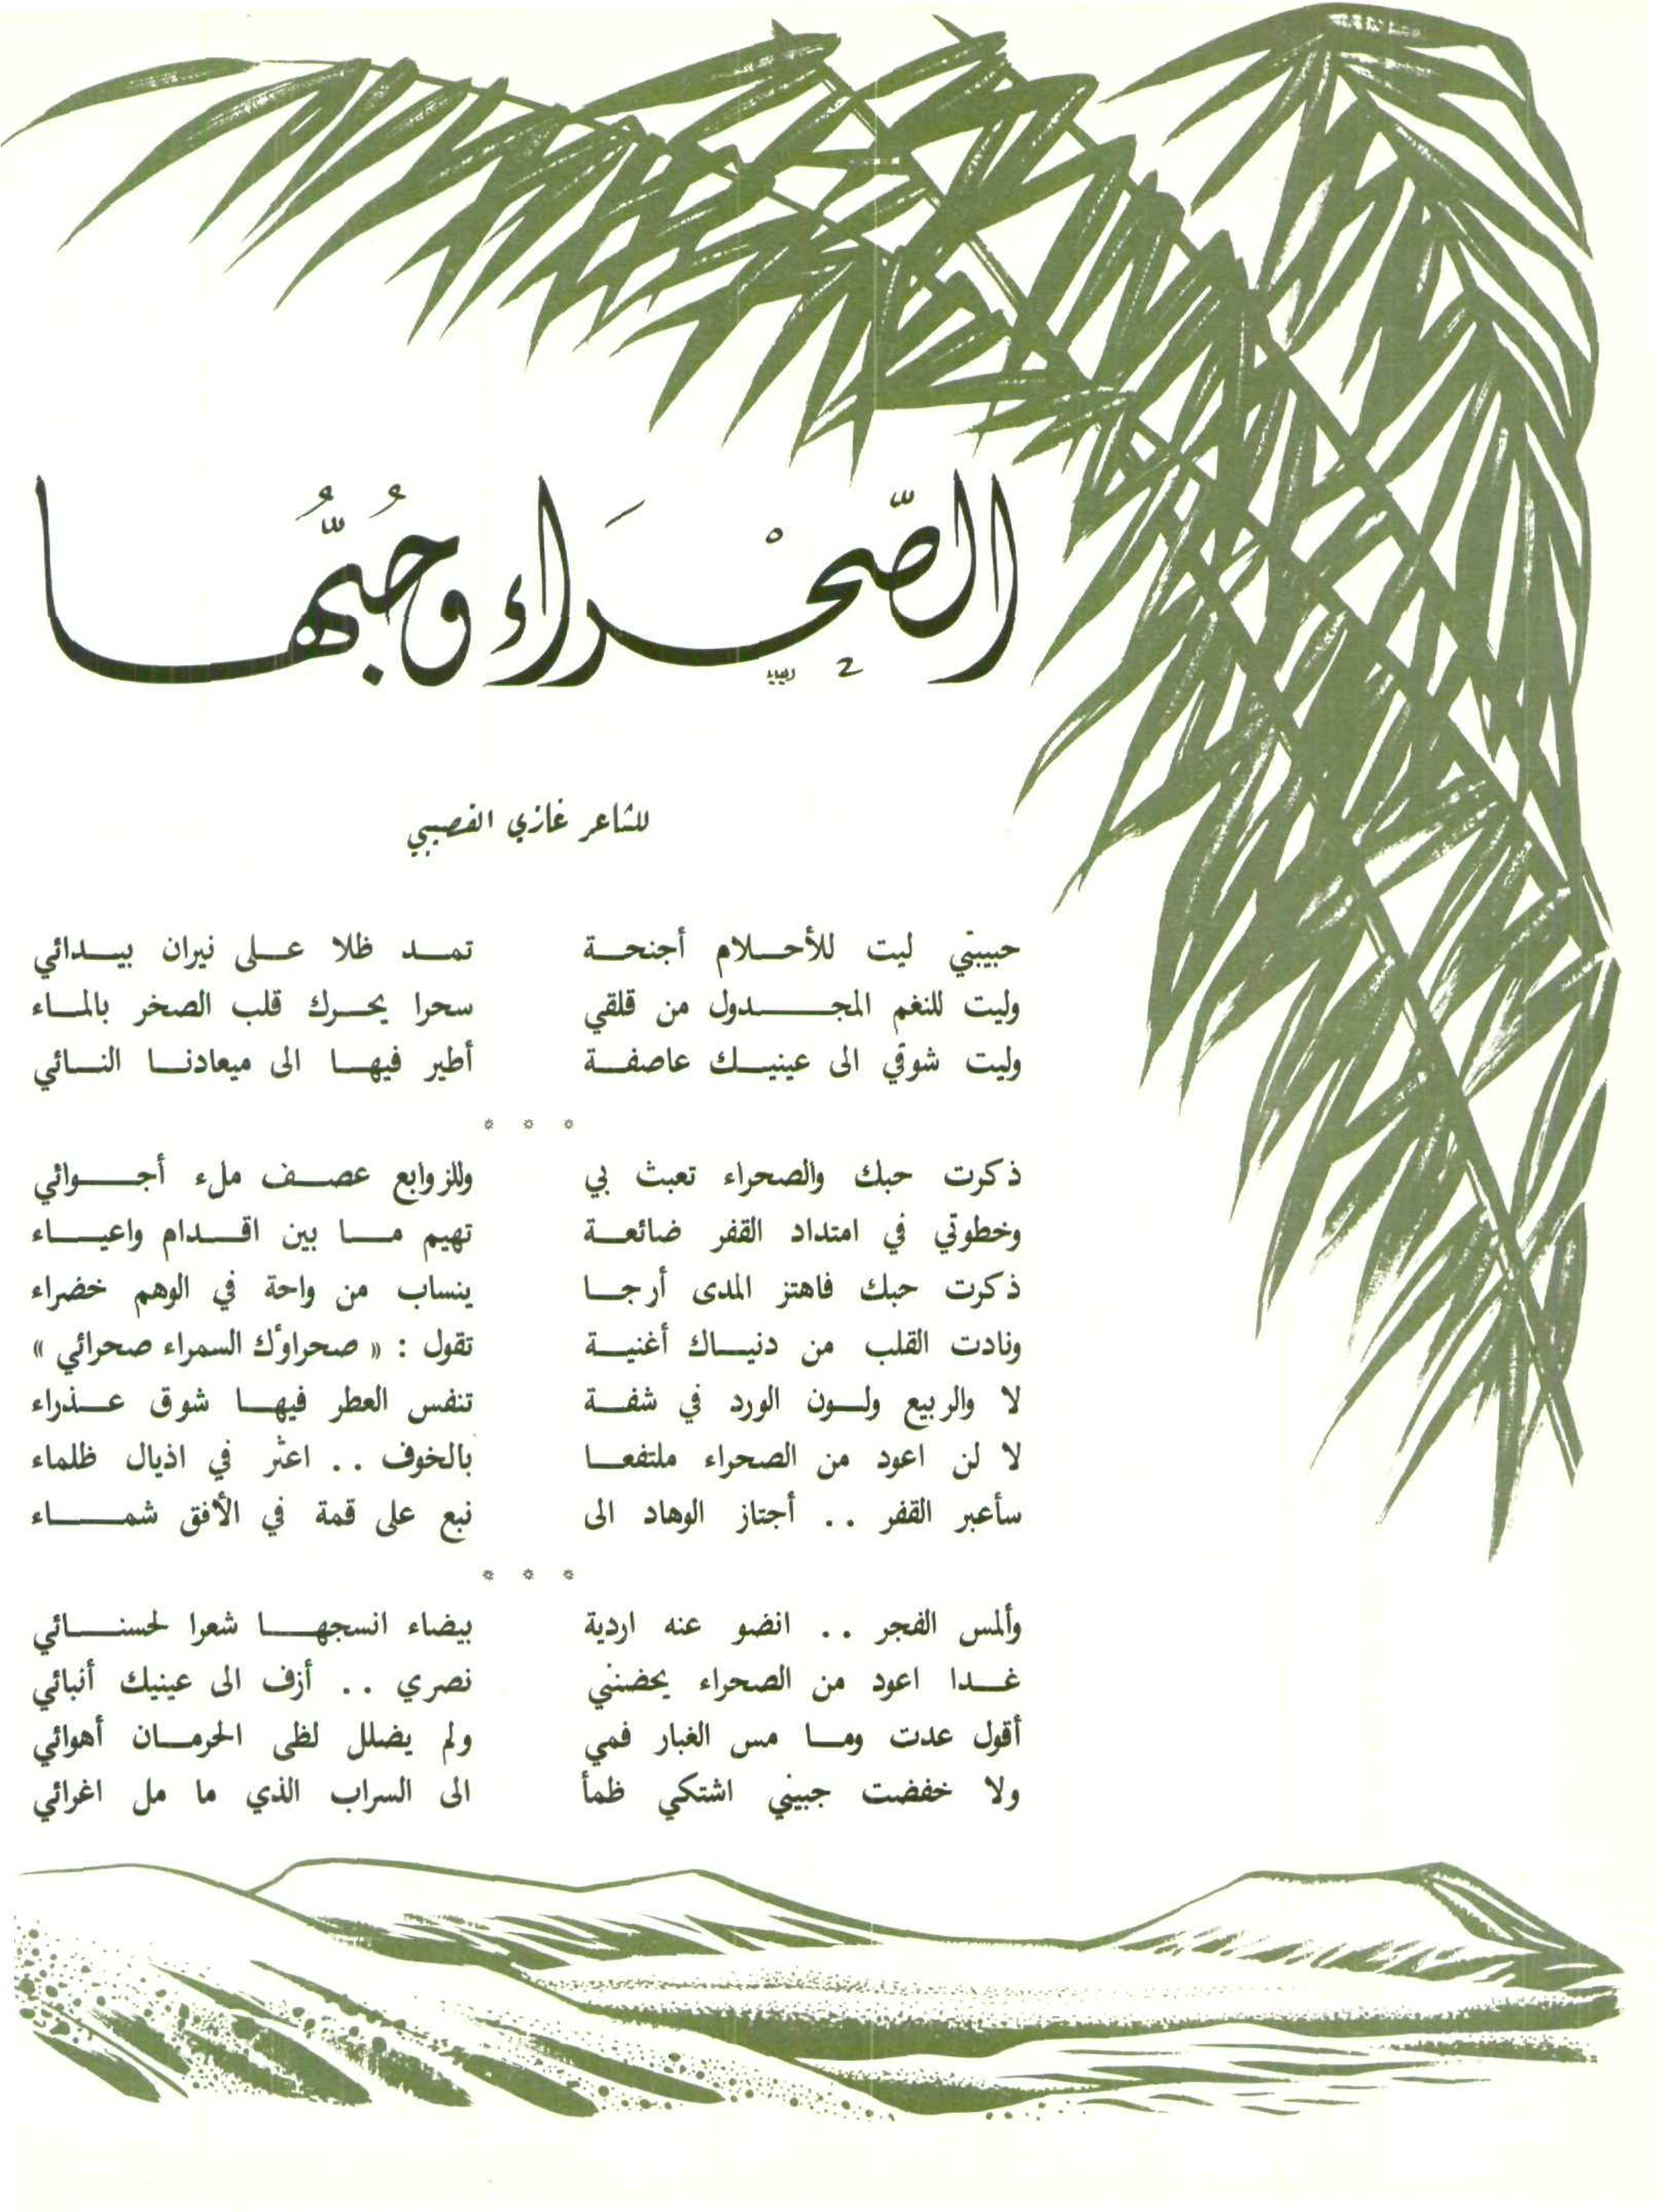 الصّحْرَاء وحُبُّهَا
للشاعر غازي القصيبي
حبيبتي ليت للأحلام أجنحة تمد ظلا على نيران بيدائي
وليت للنغم المجدول من قلقي سحرا يحرك قلب الصخر بالماء
وليت شوقي الى عينيك عاصفة أطير فيها الى ميعادنا النائي
* * *
ذكرت حبك والصحراء تعبث بي وللزوابع عصف ملء أجوائي
وخطوتي في امتداد القفر ضائعة تهيم ما بين اقدام واعياء
ذكرت حبك فاهتز المدى أرجا ينساب من واحة في الوهم خضراء
ونادت القلب من دنياك أغنية تقول : « صحراوٴك السمراء صحرائي »
لا والربيع ولون الورد في شفة تنفس العطر فيها شوق عذراء
لا لن اعود من الصحراء ملتفعا بالخوف .. اعثر في اذيال ظلماء
سأعبر القفر .. أجتاز الوهاد الى نبع على قمة في الأفق شماء
* * *
وألمس الفجر .. انضو عنه اردية بيضاء انسجها شعرا لحسنائي
غدا اعود من الصحراء يحضنني نصري .. أزف الى عينيك أنبائي
أقول عدت وما مس الغبار فمي ولم يضلل لظى الحرمان أهوائي
ولا خفضت جبيني اشتكي ظمأ الى السراب الذي ما مل اغرائي